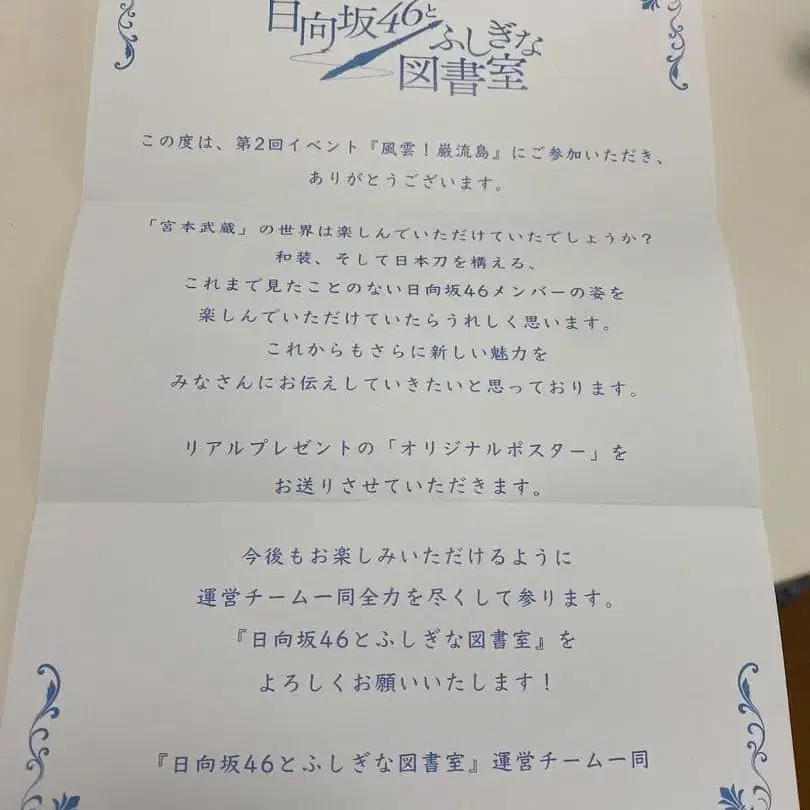 日向坂46と
ふしぎな
図書室
この度は、第2回イベント『風雲！巌流島』にご参加いただき、
ありがとうございます。
「宮本武蔵」の世界は楽しんでいただけていたでしょうか？
和装、そして日本刀を構える、
これまで見たことのない日向坂46メンバーの姿を
楽しんでいただけていたらうれしく思います。
これからもさらに新しい魅力を
みなさんにお伝えしていきたいと思っております。
リアルプレゼントの「オリジナルポスター」を
お送りさせていただきます。
今後もお楽しみいただけるように
運営チーム一同全力を尽くして参ります。
『日向坂46とふしぎな図書室』を
よろしくお願いいたします！
『日向坂46とふしぎな図書室』運営チーム一同